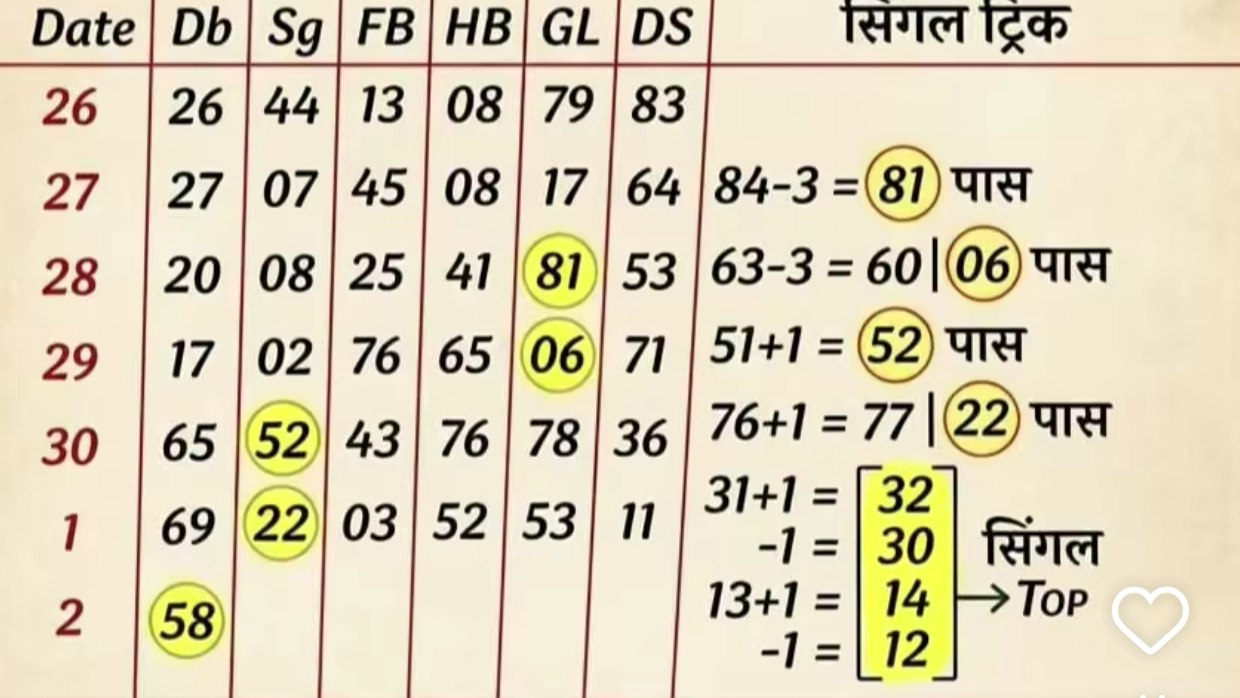 Date Db Sg FB HB GL DS सिंगल ट्रिक
26 26 44 13 08 79 83
27 27 07 45 08 17 64 84-3 = 81 पास
28 20 08 25 41 81 53 63-3 = 60|06 पास
29 17 02 76 65 06 71 51+1 = 52 पास
30 65 52 43 76 78 36 76+1 = 77|22 पास
1 69 22 03 52 53 11 31+1 = 32
-1 = 30 सिंगल
2 58 13+1 = 14 → TOP
-1 = 12